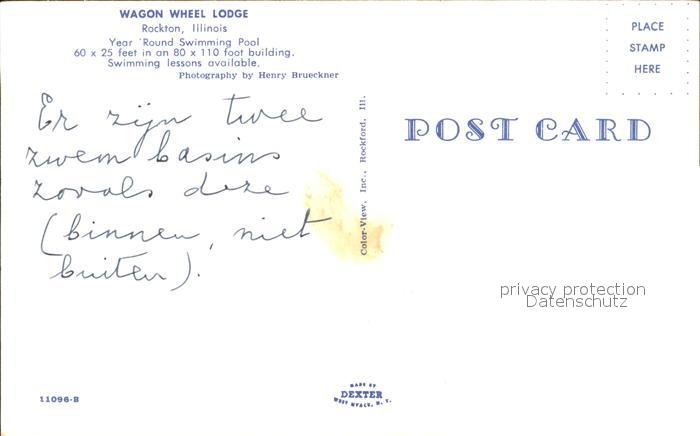 WAGON WHEEL LODGE
Rockton, Illinois
Year 'Round Swimming Pool
60 x 25 feet in an 80 x 110 foot building.
Swimming lessons available.
Photography by Henry Brueckner
Er zijn twee
zwem basins
zovals deze
(binnen, niet
buiten).
Color-View, Inc., Rockford, Ill.
PLACE
STAMP
HERE
POST CARD
privacy protection
Datenschutz
11096-B
MADE BY
DEXTER
WEST NYACK, N. Y.